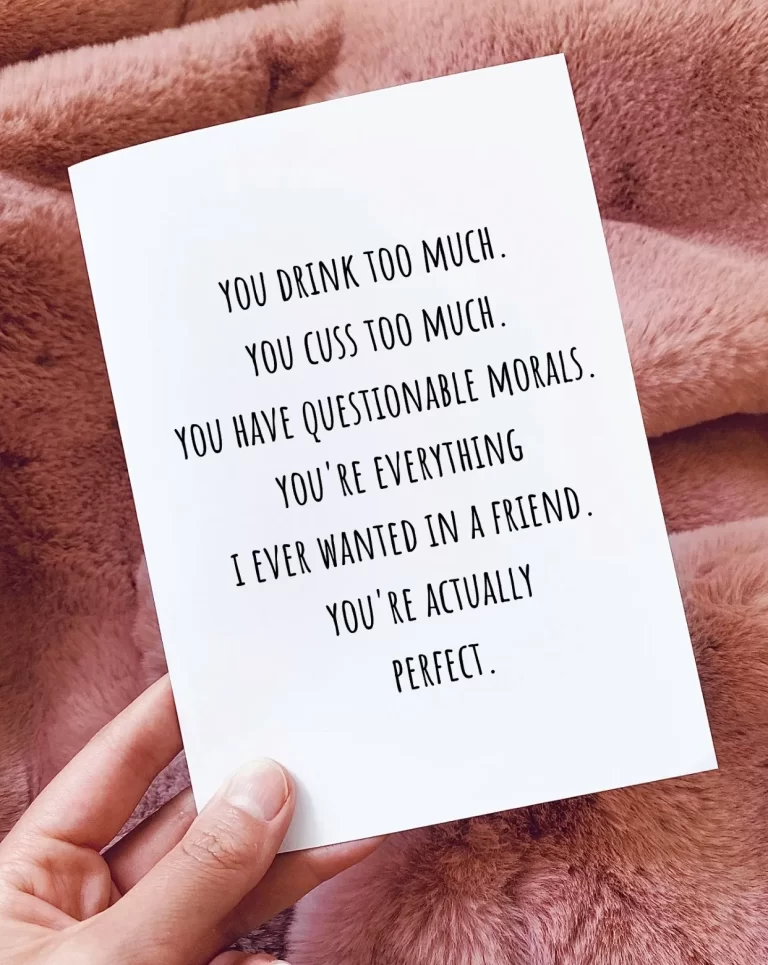 YOU DRINK TOO MUCH.
YOU CUSS TOO MUCH.
YOU HAVE QUESTIONABLE MORALS.
YOU'RE EVERYTHING
I EVER WANTED IN A FRIEND.
YOU'RE ACTUALLY
PERFECT.